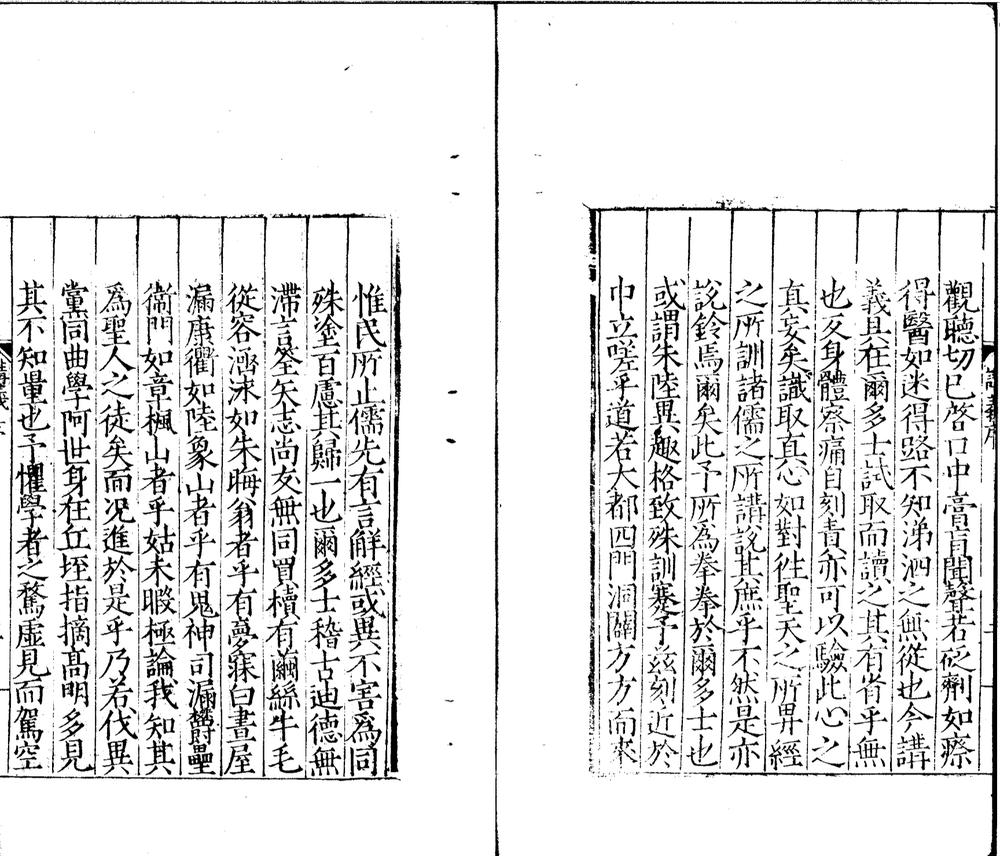 觀聽切已啓口中膏肓聞聲若砭劑如瘵
得醫如迷得路不知涕泗之無從也今講
義具在爾多士試取而讀之其有省乎無
也反身體察痛自刻責亦可以驗此心之
真妄矣識取真心如對徃聖天之所畀經
之所訓諸儒之所講說其庶乎不然是亦
說鈴焉爾矣此予所為拳拳於爾多士也
或謂朱陸異趣格致殊訓蹇予兹刻近於
巾立嗟乎道若大都四門洞闢方方而來
講義序
惟民所止儒先有言解經或異不害爲同
殊塗百慮其歸一也爾多士稽古迪德無
滯言筌矢志尚友無同買櫝有繭絲牛毛
從容濟沭如朱晦翁者乎有夢寐白晝屋
漏康衢如陸象山者乎有鬼神司漏欝壘
衞門如章楓山者乎姑未暇極論我知其
爲聖人之徒矣而况進於是乎乃若伐異
黨同曲學阿世身在丘垤指摘高明多見
其不知量也予懼學者之騖虛見而駕空
講義序